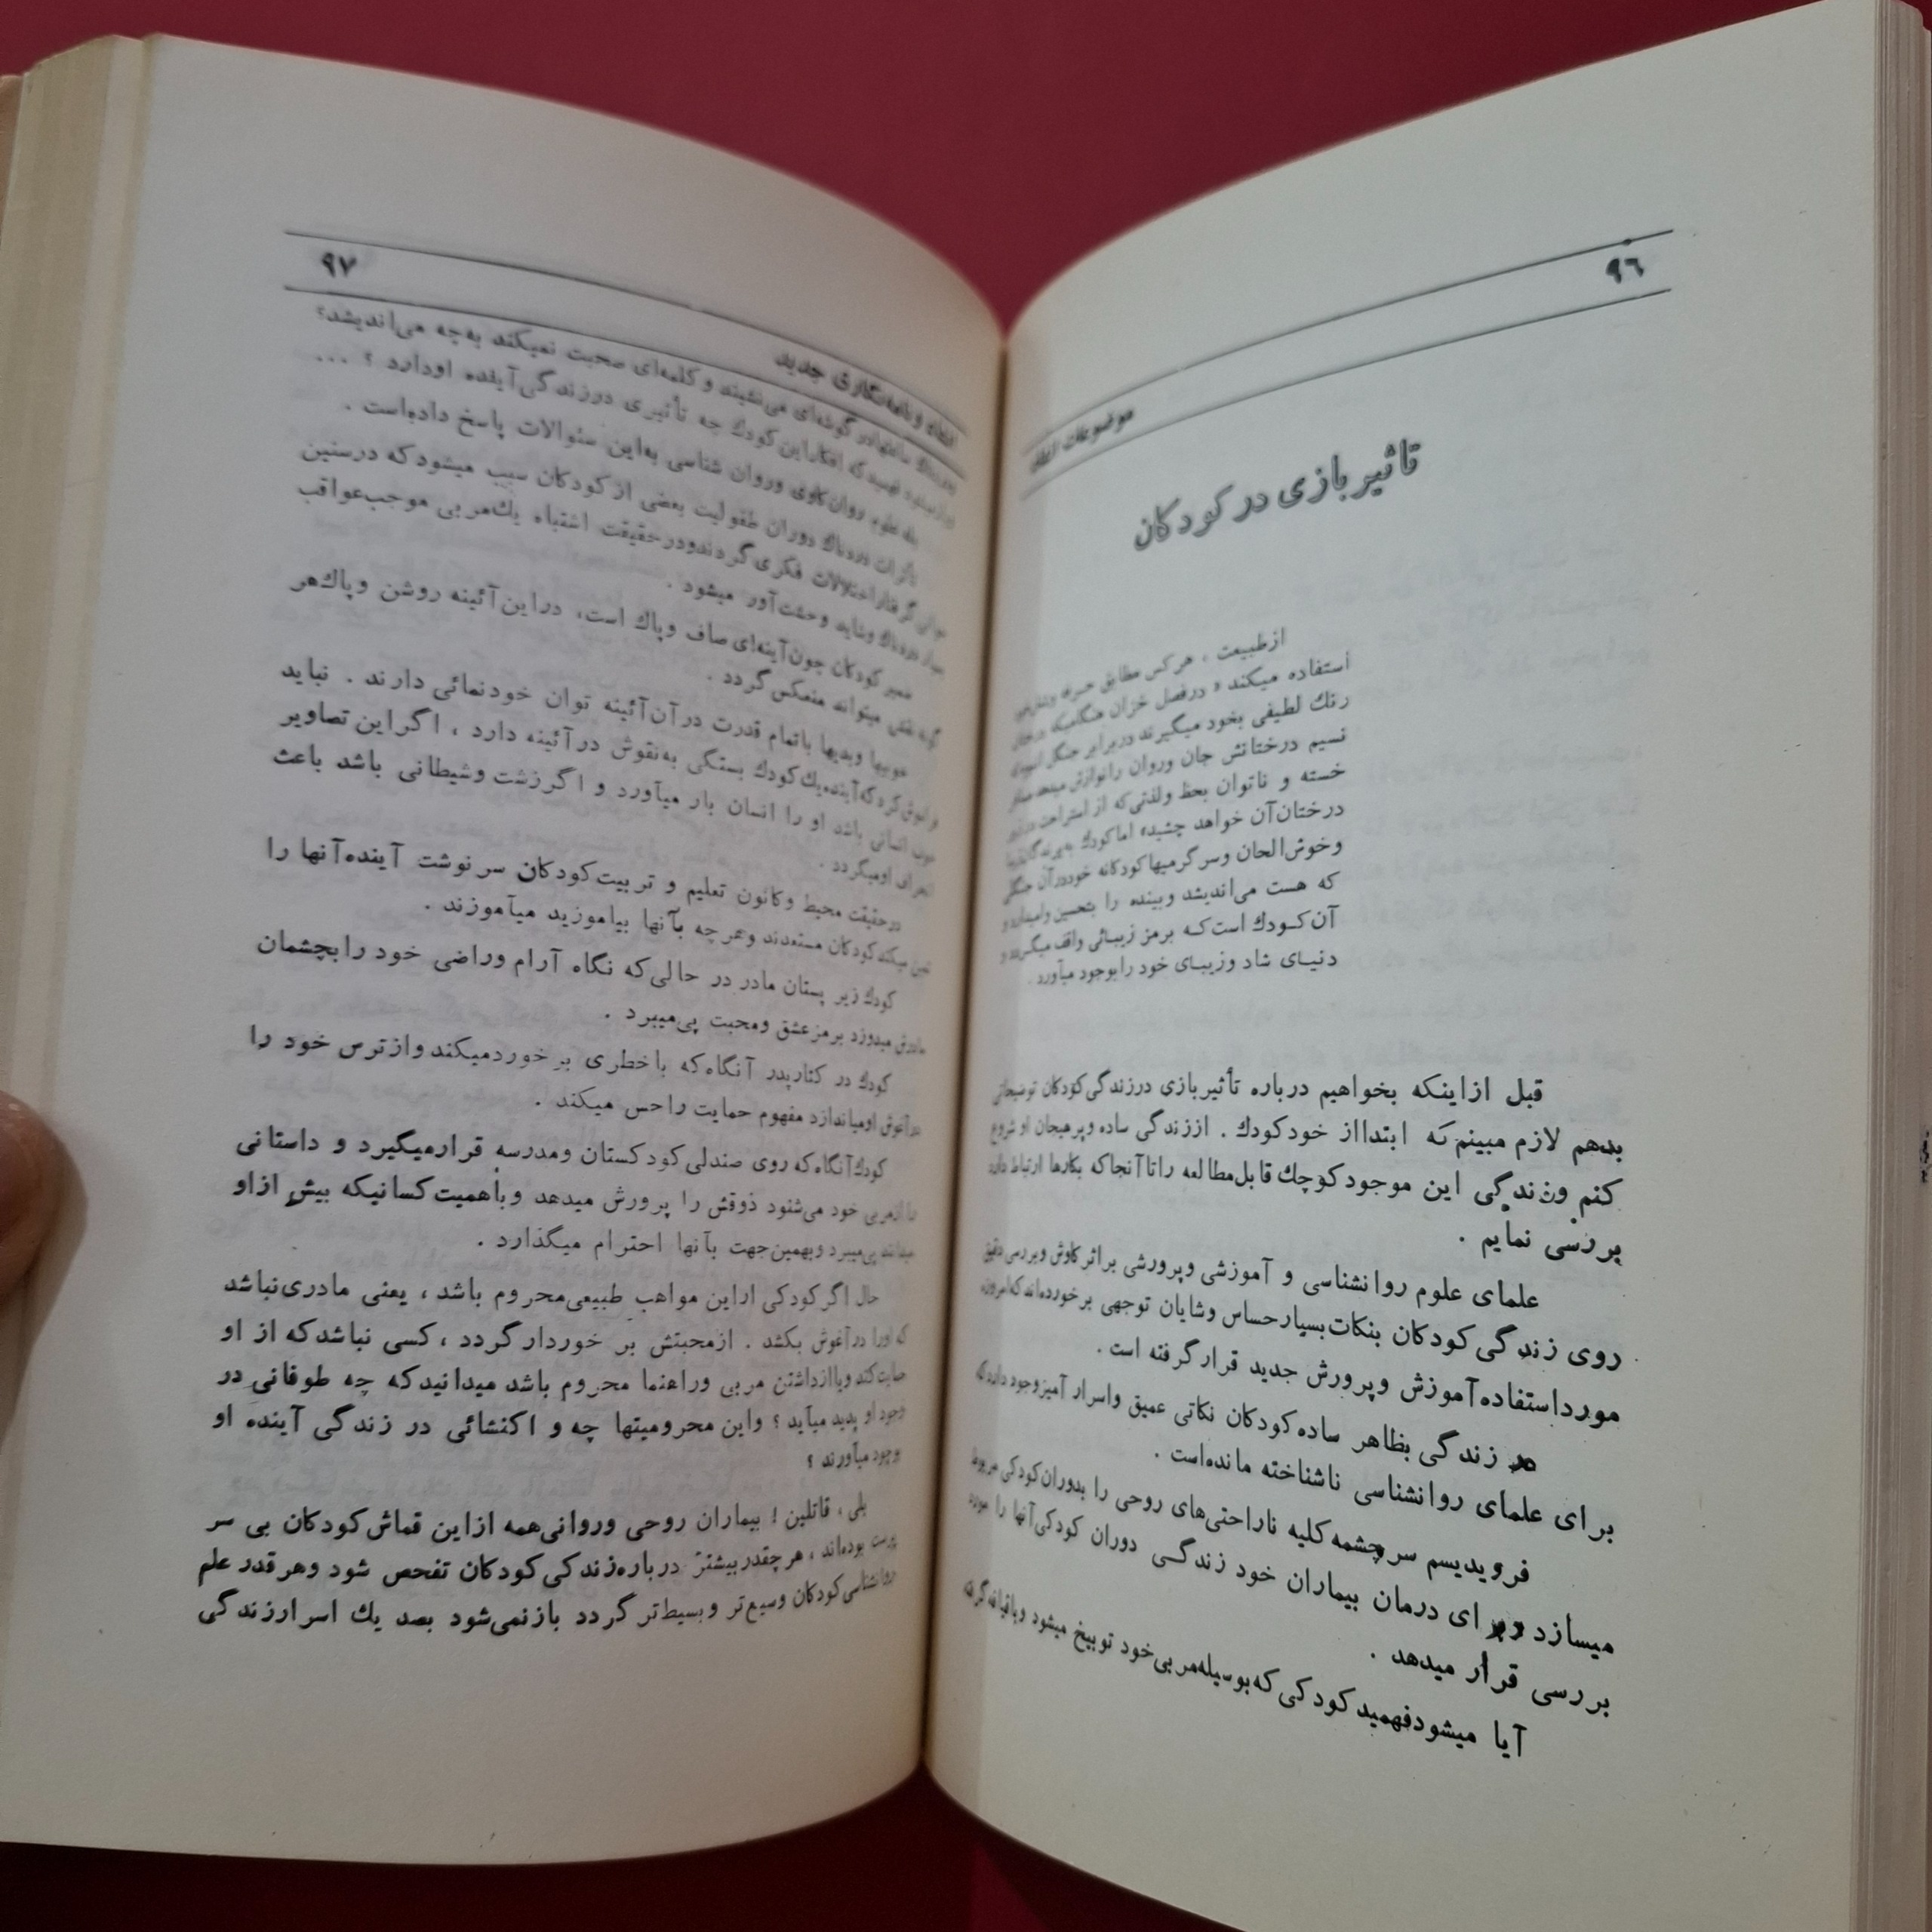 ۹٦
موضوعات انشاء
تاثیر بازی در کودکان
از طبیعت ، هر کس مطابق
استفاده میکند » در فصل خزان هنگامیکه
رنك لطیفی بخود میگیرند در برابر جنگل
نسیم درختانش جان وروان را نوازش میدهد
خسته و ناتوان بحظ ولذتی که از استراحت
درختان آن خواهد چشید» اما کودك به پرندگان
وخوش الحان وسر گرمیها کودکانه خود در آن جنگل
که هست می‌اندیشد وبیننده را بتحسین وامیدارد و
آن کودك است که برمز زیبائی واقف میگردد و
دنیای شاد وزیبای خود را بوجود میآورد .
قبل از اینکه بخواهیم درباره تأثیر بازی در زندگی کودکان توضیحاتی
بدهم لازم میبینم که ابتدا از خود کودك . از زندگی ساده و پر هیجان او شروع
کنم و زندگی این موجود کوچك قابل مطالعه را تا آنجا که بکارها ارتباط دارد
بررسی نمایم .
علمای علوم روانشناسی و آموزشی وپرورشی بر اثر کاوش وبررسی دقیق
روی زندگی کودکان بنکات بسیار حساس وشایان توجهی بر خورده‌اند که امروزه
مورد استفاده آموزش وپرورش جدید قرار گرفته است .
در زندگی بظاهر ساده کودکان نکاتی عمیق واسرار آمیز وجود دارد که
برای علمای روانشناسی ناشناخته مانده‌است .
فرویدیسم سرچشمه کلیه ناراحتی‌های روحی را بدوران کودکی مربوط
میسازد و برای درمان بیماران خود زندگی دوران کودکی آنها را مورد
بررسی قرار میدهد .
آیا میشود فهمید کودکی که بوسیله مربی خود توبیخ میشود وبا قیافه گرفته
۹۷
انشاء و نامه نگاری جدید
در گوشه‌ای می‌نشیند و کلمه‌ای صحبت نمیکند به‌چه می‌اندیشد؟
فهمید که افکار این کودك چه تأثیری در زندگی آینده او دارد ؟ ...
بله علوم روان کاوی وروان شناسی به‌این سئوالات پاسخ داده‌است .
تأثرات دردناك دوران طفولیت بعضی از کودکان سبب میشود که در سنین
گرفتار اختلالات فکری گردند و در حقیقت اشتباه یك مربی موجب عواقب
بسیار دردناك وشاید وحشت آور میشود .
ضمیر کودکان چون آینه‌ای صاف وپاك است، در این آئینه روشن وپاك هر
گونه نقشی میتواند منعکس گردد .
خوبیها وبدیها با تمام قدرت در آن آئینه توان خودنمائی دارند . نباید
فراموش کرد که آینده یك کودك بستگی به‌نقوش در آئینه دارد ، اگر این تصاویر
خوب انسانی باشد او را انسان بار میآورد و اگر زشت وشیطانی باشد باعث
انحراف او میگردد .
در حقیقت محیط وکانون تعلیم و تربیت کودکان سر نوشت آینده آنها را
تعیین میکند کودکان مستعدند وهر چه بآنها بیاموزید میآموزند .
کودك زیر پستان مادر در حالی که نگاه آرام وراضی خود را بچشمان
مادرش میدوزد برمز عشق ومحبت پی‌میبرد .
کودك در کنار پدر آنگاه که با خطری بر خورد میکند و از ترس خود را
در آغوش او میاندازد مفهوم حمایت را حس میکند .
کودك آنگاه که روی صندلی کودکستان ومدرسه قرار میگیرد و داستانی
را از مربی خود می‌شنود ذوقش را پرورش میدهد و بأهمیت کسانیکه بیش از او
میدانند پی‌میبرد وبهمین جهت بآنها احترام میگذارد .
حال اگر کودکی از این مواهب طبیعی محروم باشد ، یعنی مادری نباشد
که او را در آغوش بکشد . از محبتش بر خوردار گردد ، کسی نباشد که از او
حمایت کند ویا از داشتن مربی وراهنما محروم باشد میدانید که چه طوفانی در
وجود او پدید میآید ؟ واین محرومیتها چه و اکنشائی در زندگی آینده او
بوجود میآورند ؟
بلی ، قاتلین ! بیماران روحی وروانی همه از این قماش کودکان بی سر
پرست بوده‌اند ، هر چقدر بیشتر درباره زندگی کودکان تفحص شود وهر قدر علم
روانشناسی کودکان وسیع تر و بسیط تر گردد باز نمی‌شود بصد یك اسرار زندگی